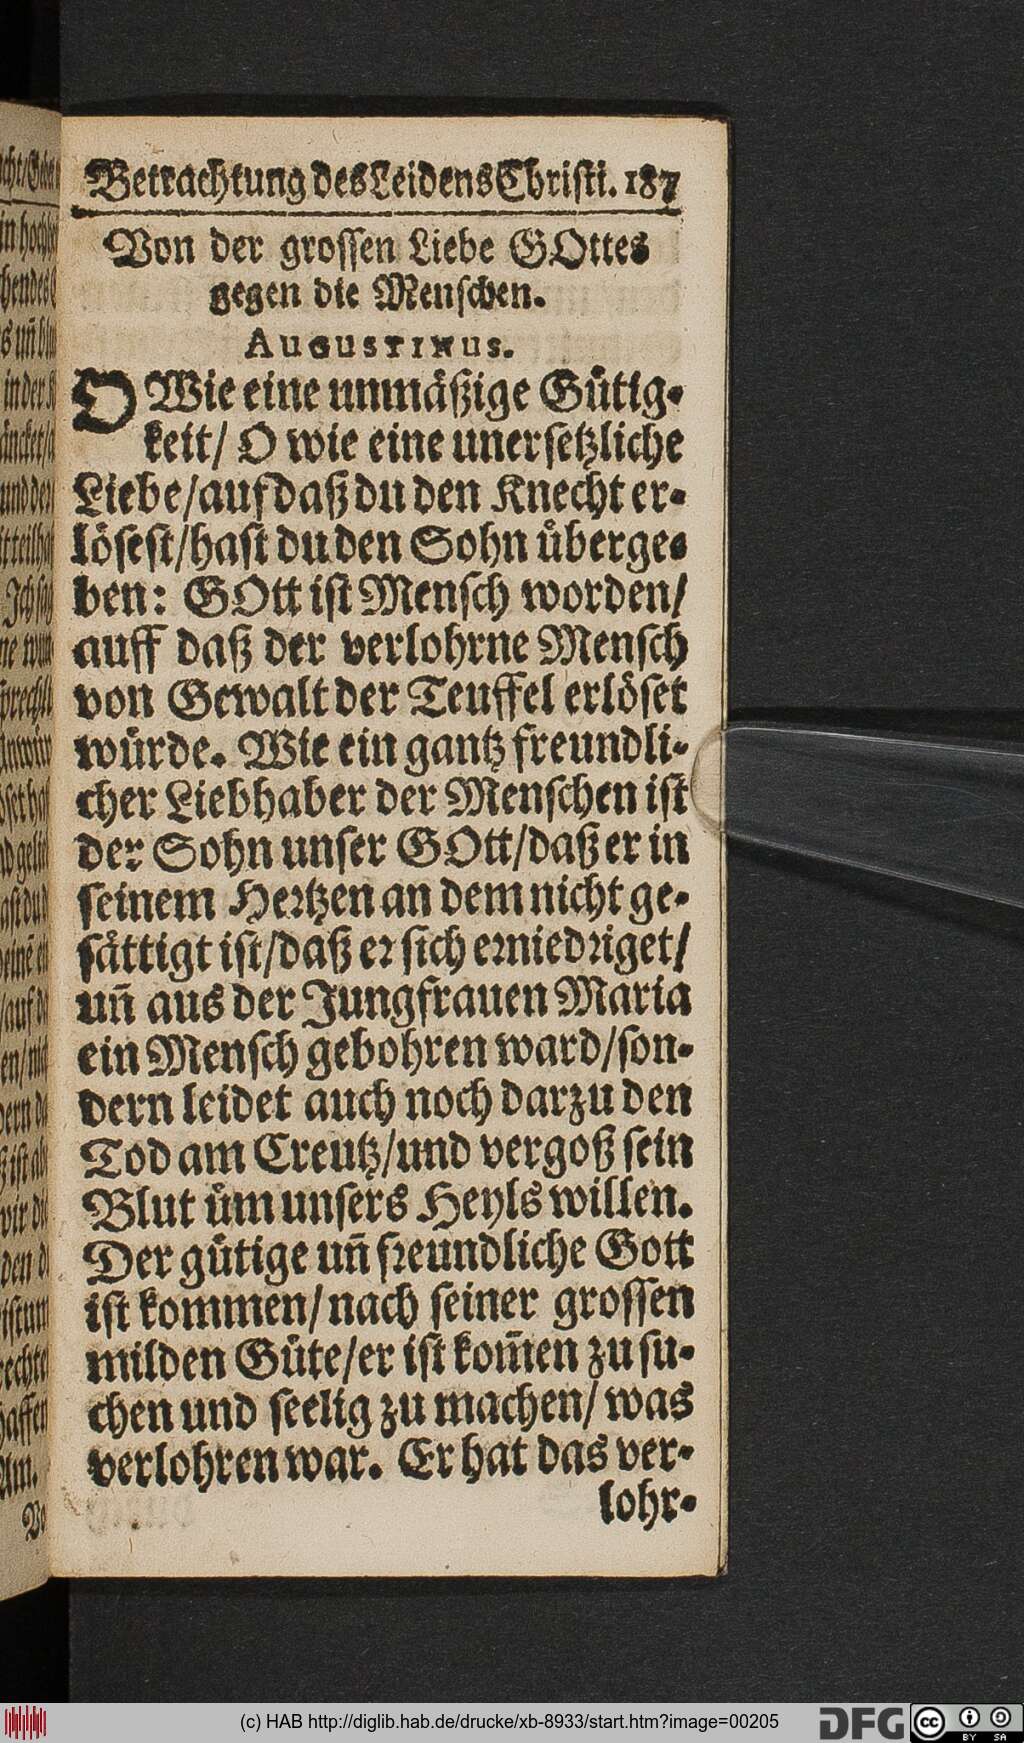 Betrachtung des Leidens Christi. 187
Von der grossen Liebe GOttes
gegen die Menschen.
AUGUSTINUS.
O Wie eine unmäßige Gütig-
keit/ O wie eine unersetzliche
Liebe/auf daß du den Knecht er-
lösest/hast du den Sohn überge-
ben: GOtt ist Mensch worden/
auff daß der verlohrne Mensch
von Gewalt der Teuffel erlöset
würde. Wie ein gantz freundli-
cher Liebhaber der Menschen ist
der Sohn unser GOtt/daß er in
seinem Hertzen an dem nicht ge-
sättigt ist/daß er sich erniedriget/
uñ aus der Jungfrauen Maria
ein Mensch gebohren ward/son-
dern leidet auch noch darzu den
Tod am Creutz/und vergoß sein
Blut üm unsers Heyls willen.
Der gütige uñ freundliche Gott
ist kommen/nach seiner grossen
milden Güte/er ist kom̃en zu su-
chen und seelig zu machen/ was
verlohren war. Er hat das ver-
lohr-
(c) HAB http://diglib.hab.de/drucke/xb-8933/start.htm?image=00205
DFG
cc
BY SA